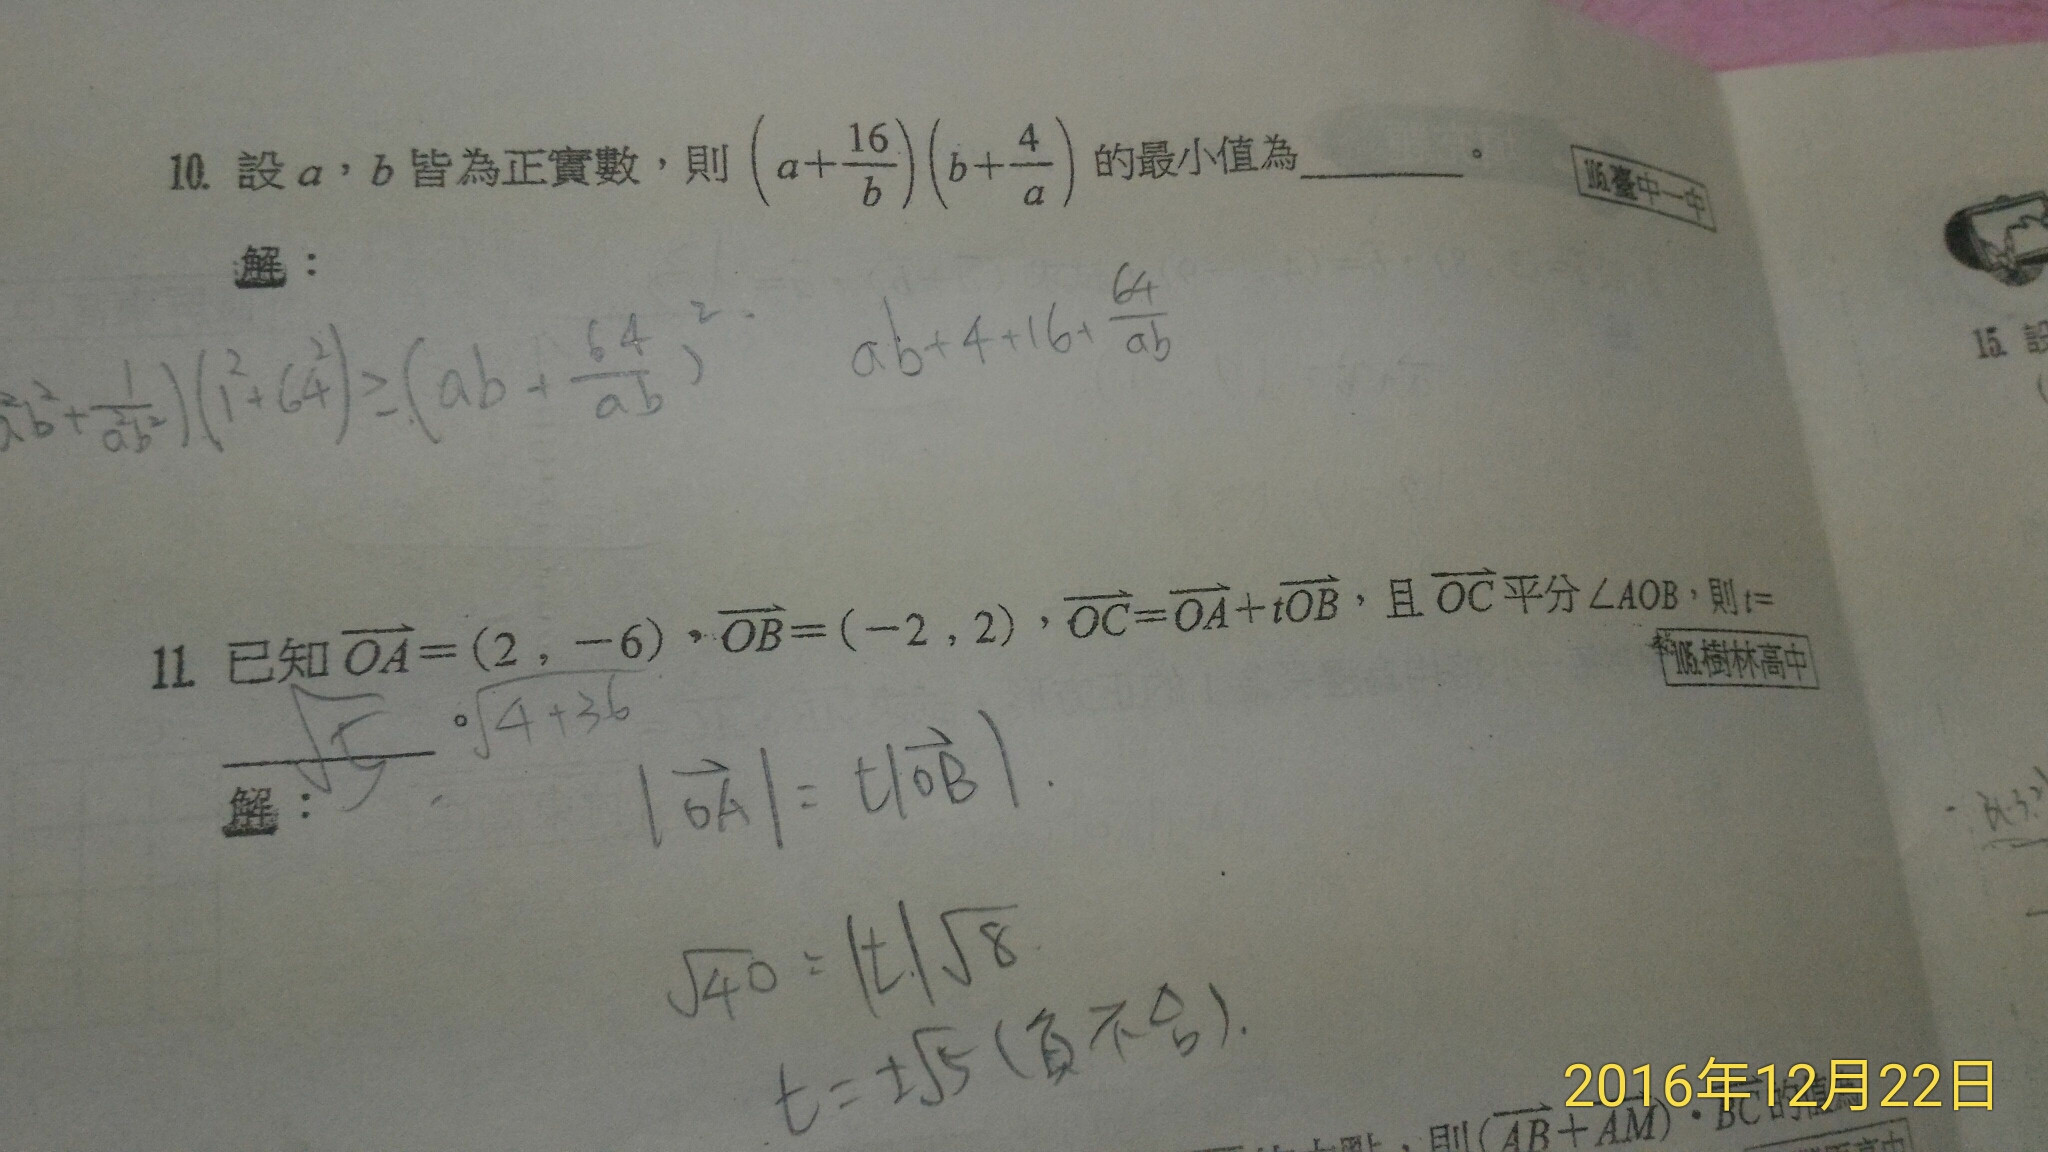 10. 設 a，b 皆為正實數，則 (a+16/b)(b+4/a) 的最小值為______。
105.臺中一中
解：
a²b²+1/a²b²)(1²+64²)≥(ab+64/ab)².
ab+4+16+64/ab
15. 設
11. 已知 OA=(2，-6)，OB=(-2，2)，OC=OA+tOB，且 OC 平分∠AOB，則 t=
105.樹林高中
√5。
√4+36
解：
|OA|=t|OB|.
√40=|t|√8
t=±√5(負不合).
2016年12月22日
，則(AB+AM)·BC的值為